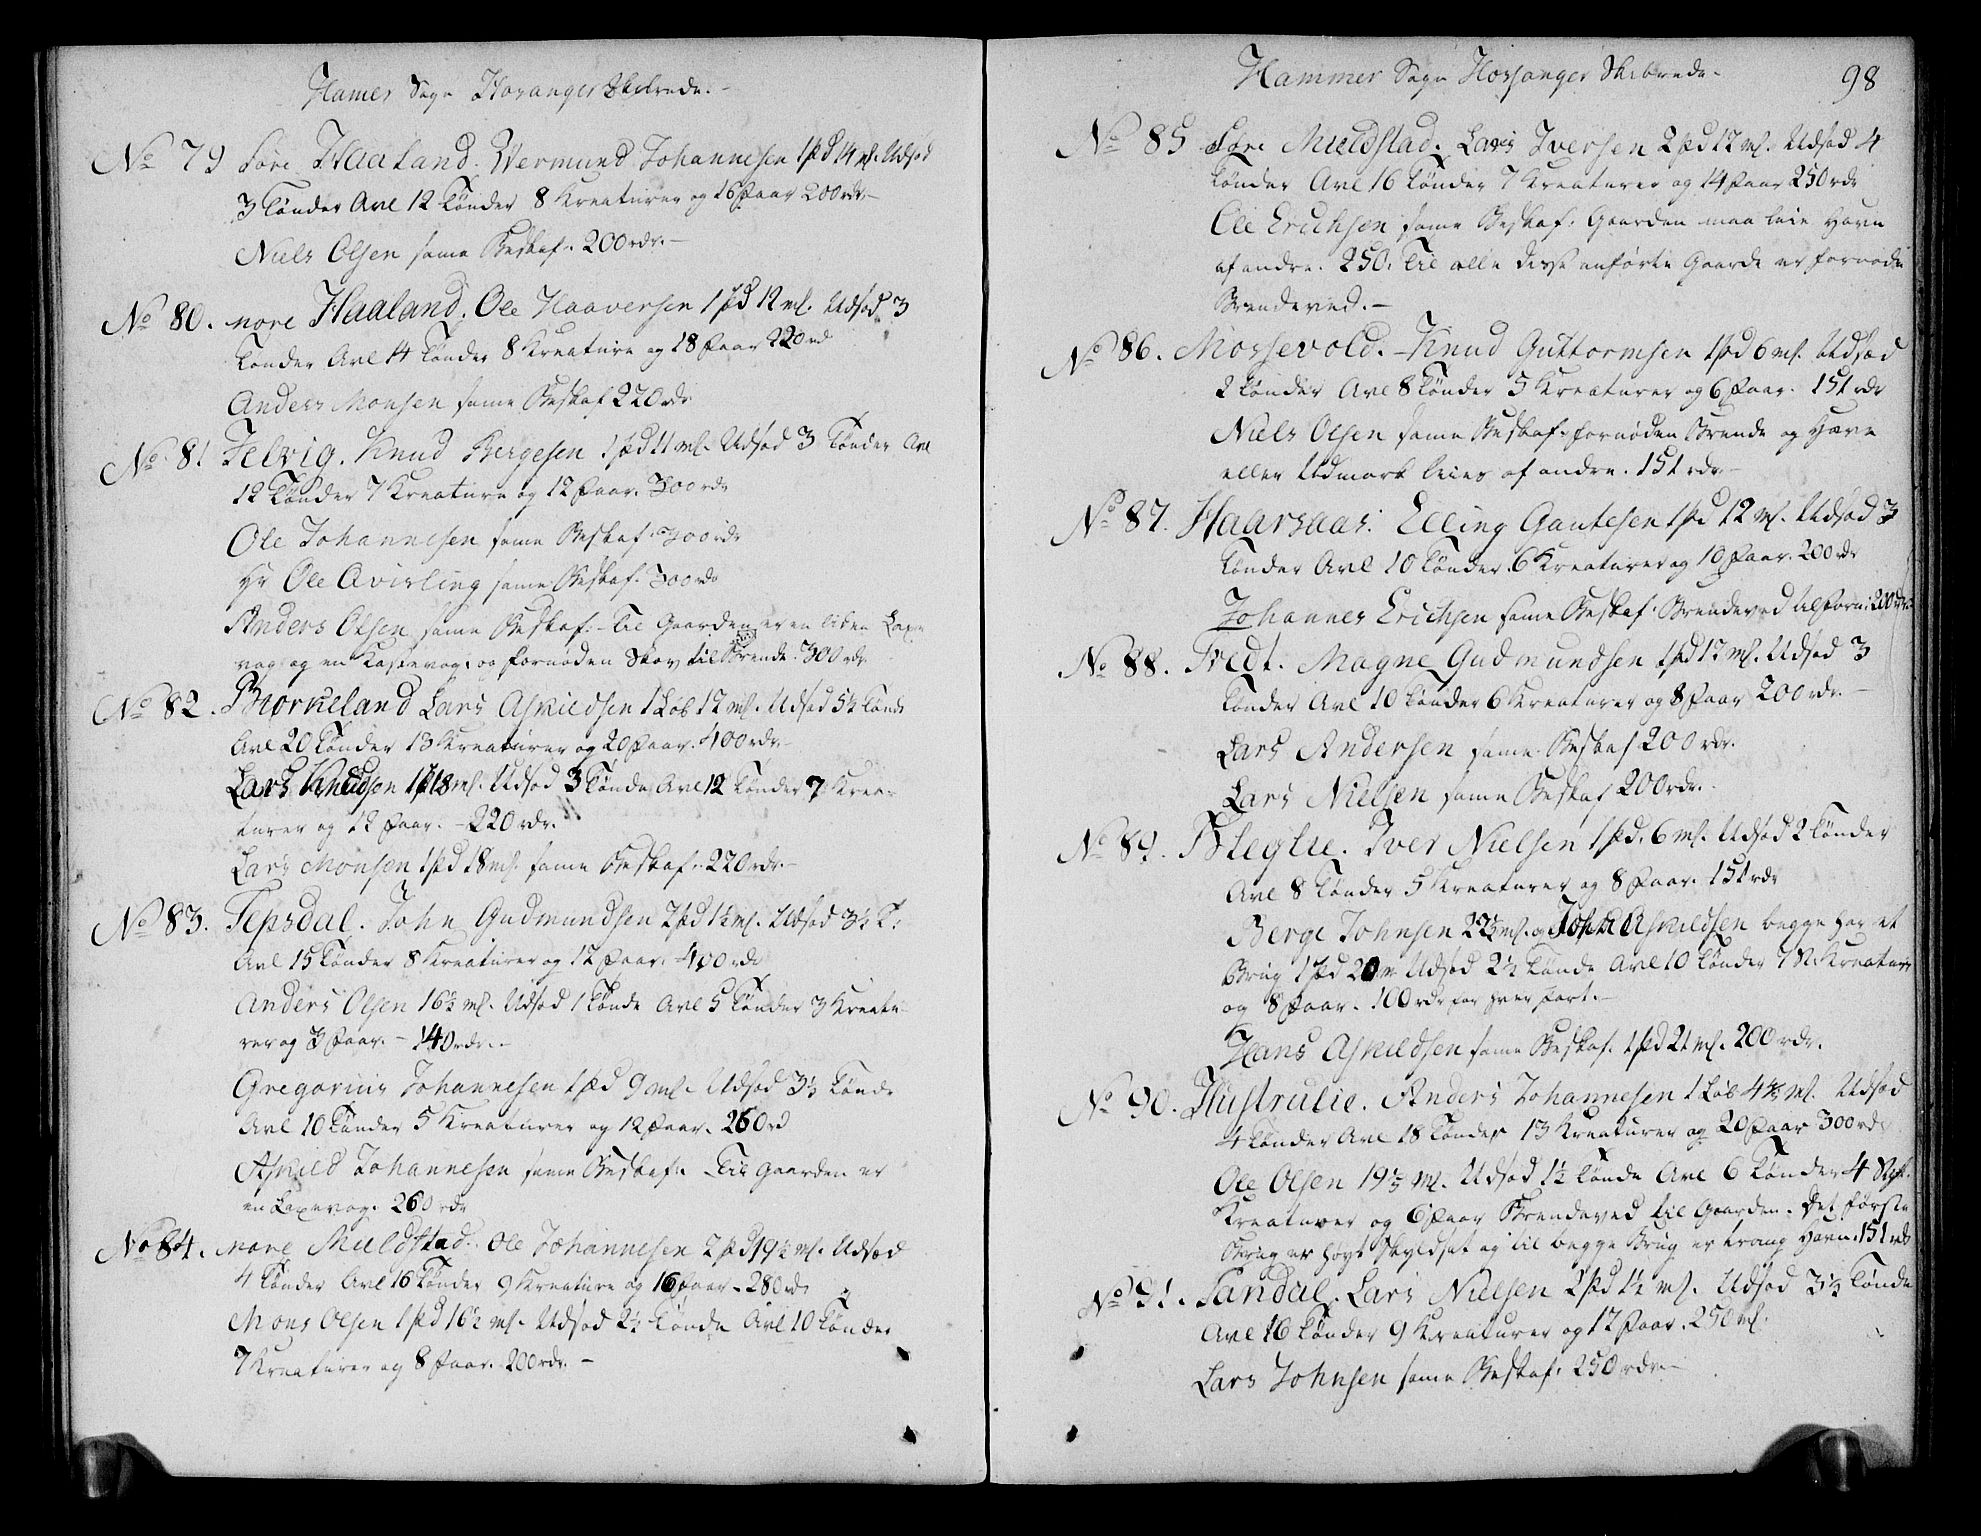 Hamer Sogn Hosanger Skibrede.-
No 79 Søre Haaland. Wermund Johannesen 1 pd 14 ml. Udsæd
3 tønder Avl 12 tønder 8 Kreaturer og 16 Faar 200 rdr.-
Niels Olsen same Beskaf. 200 rdr.-
No 80. nore Haaland. Ole Haaversen 1 pd 12 ml. Udsæd 3
tønder Avl 14 tønder 8 Kreature og 18 Faar 220 rd
Anders Monsen same Beskaf 220 rdr
No 81 Helvig. Knud Bergesen 1 pd 11 ml. Udsæd 3 tønder Avl
12 tønder 7 Kreature og 12 Faar. 300 rdr
Ole Johannesen same Beskaf. 300 rdr
Hr Ole Avirling same Beskaf. 300 rdr
Anders Olsen same Beskaf.- Til Gaarden er en liden Laxe
vog og en Kastevog. og fornøden Skov til Brende. 300 rdr
No 82. Biorkeland Lars Askildsen 1 Løb 12 ml. Udsæd 5½ tønde
Avl 20 tønder 13 Kreaturer og 20 Faar. 400 rdr.-
Lars Knudsen 1 p 18 ml. Udsæd 3 tønde Avl 12 tønder 7 Krea-
turer og 12 Faar. - 220 rdr.
Lars Monsen 1 pd 18 ml. same Beskaf. 220 rdr.-
No 83. Tepsdal. John Gudmundsen 2 pd 1½ ml. Udsæd 3½ T:
Avl 15 tønder 8 Kreaturer og 12 Faar. 400 rdr
Anders Olsen 16½ ml. Udsæd 1 tønde Avl 5 tønder 3 Kreatu-
rer og 3 Faar. - 140 rdr.-
Gregorius Johannesen 1 pd 9 ml. Udsæd 3½ tønde
Avl 10 tønder 5 Kreaturer og 12 Faar. 260 rd
Askild Johannesen same Beskaf. Til Gaarden er
en Laxevog. 260 rdr
No 84. nore Muldstad. Ole Johannesen 2 pd 19½ ml. Udsæd
4 tønder Avl 16 tønder 9 Kreature og 16 Faar - 280 rdr
Mons Olsen 1 pd 16½ ml. Udsæd 2½ tønde Avl 10 tønder
7 Kreaturer og 8 Faar. 200 rdr. -
Hammer Sogn Hossanger Skibrede.
98
No 85 Søre Muldstad. Lars Iversen 2 pd 12 ml. Udsæd 4
tønder Avl 16 tønder 7 Kreaturer og 14 Faar 250 rdr
Ole Erichsen same Beskaf. Gaarden maa leie Havn
af andre. 250. Til alle disse anførte Gaarde er fornøden
Brendeved.-
No 86. Mossevold. Knud Guttormsen 1 pd 6 ml. Udsæd
2 tønder Avl 8 tønder 5 Kreaturer og 6 Faar. 151 rdr
Niels Olsen same Beskaf. fornøden Brende og Havn
eller Udmark leies af andre. 151 rdr.-
No 87. Haarsaas. Elling Gautesen 1 pd 12 ml. Udsæd 3
tønder Avl 10 tønder 6 Kreaturer og 10 Faar. 200 rdr
Johannes Erichsen same Beskaf. Brendeved tilforn: 200 rdr.
No 88. Tvedt. Magne Gudmundsen 1 pd 12 ml. Udsæd 3
tønder Avl 10 tønder 6 Kreaturer og 8 Faar 200 rdr.-
Lars Andersen same Beskaf 200 rdr.
Lars Nielsen same Beskaf 200 rdr.
No 89. Bleglie. Iver Nielsen 1 pd. 6 ml. Udsæd 2 tønder
Avl 8 tønder 5 Kreaturer og 8 Faar. 151 rdr
Berge Johnsen 22½ ml. og John Askildsen begge har et
Brug 1 pd 20 m Udsæd 2½ tønde Avl 10 tønder 7 St. Kreaturer
og 8 Faar. 100 rdr for hver Part.-
Hans Askildsen same Beskaf. 1 pd 21 ml. 200 rdr.
No 90. Hustrulie. Anders Johannesen 1 Løb 4⅘ ml. Udsæd
4 tønder Avl 18 tønder 13 Kreaturer og 20 Faar 300 rdr
Ole Olsen 19⅕ ml. Udsæd 1½ tønde Avl 6 tønder 4 Stk.
Kreaturer og 6 Faar Brendeved til Gaarden. Det første
Brug er høyt skyldsat og til begge Brug er trang Havn. 151 rdr
No 91. Sandal. Lars Nielsen 2 pd 1½ ml. Udsæd 3½ tønde
Avl 16 tønder 9 Kreaturer og 12 Faar. 250 ml.
Lars Johnsen same Beskaf. 250 rdr.-